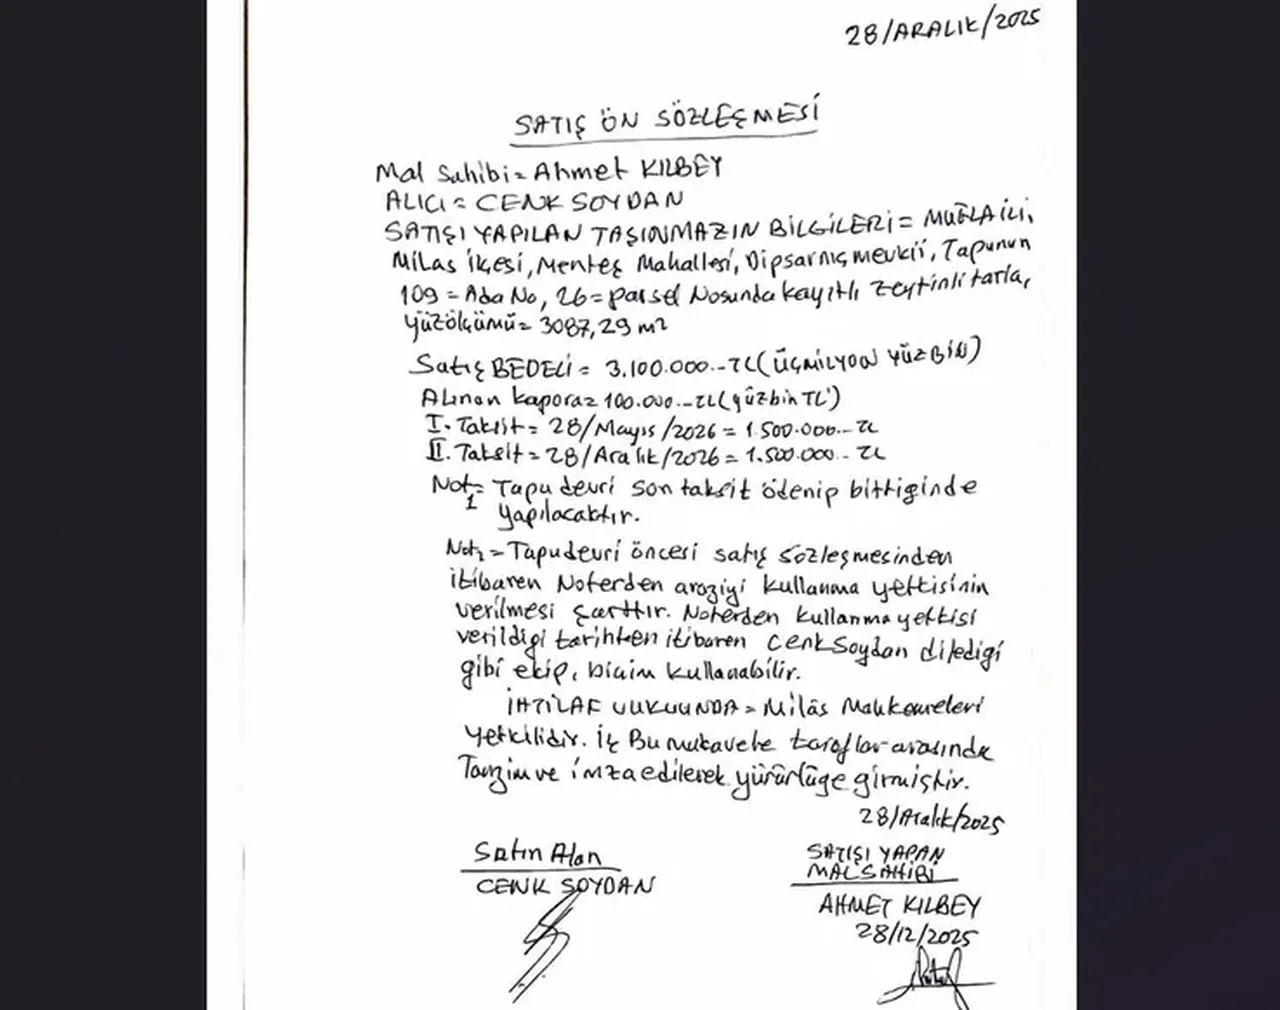 28/ARALIK/2025
SATIŞ ÖN SÖZLEŞMESİ
Mal Sahibi = Ahmet KILBEY
ALICI = CENK SOYDAN
SATIŞI YAPILAN TAŞINMAZIN BİLGİLERİ = MUĞLA İLİ,
Milas ilçesi, Menteş Mahallesi, Dipsarnıç mevkii, Tapunun
109 = Ada No, 26 = parsel Nosunda kayıtlı zeytinli tarla,
yüzölçümü = 3087,29 m²
Satış BEDELİ = 3.100.000.-TL (ÜÇMİLYON YÜZBİN)
Alınan kaporaz 100.000.-TL (yüzbin TL')
I. Taksit = 28/Mayıs/2026 = 1.500.000.- TL
II. Taksit = 28/Aralık/2026 = 1.500.000.- TL
Not 1 = Tapu devri son taksit ödenip bittiğinde
yapılacaktır.
Not 2 = Tapu devri öncesi satış sözleşmesinden
itibaren Noterden araziyi kullanma yetkisinin
verilmesi şarttır. Noterden kullanma yetkisi
verildiği tarihten itibaren Cenk Soydan dilediği
gibi ekip, biçim kullanabilir.
İHTİLAF VUKUUNDA = Milâs Mahkemeleri
Yetkilidir. İş Bu mukavele taraflar arasında
Tanzim ve imza edilerek yürürlüğe girmiştir.
28/Aralık/2025
Satın Alan
CENK SOYDAN
SATIŞI YAPAN
MAL SAHİBİ
AHMET KILBEY
28/12/2025